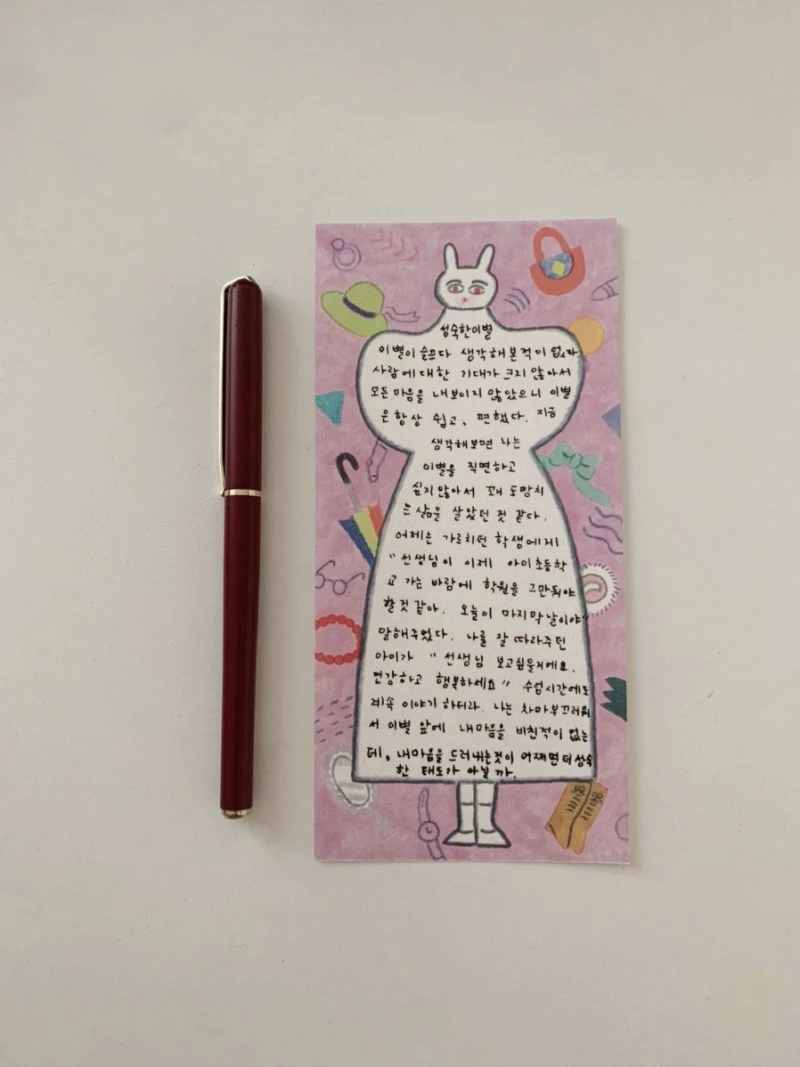 성숙한이별
이별이 슬프다 생각해본적이 없다
사람에 대한 기대가 크지 않아서
모든 마음을 내보이지 않았으니 이별
은 항상 쉽고, 편했다. 지금
생각해보면 나는
이별을 직면하고
싶지않아서 꽤 도망치
는 삶을 살았던 것 같다.
어제는 가르치던 학생에게
"선생님이 이제 아이초등학
교 가는 바람에 학원을 그만둬야
할것 같아. 오늘이 마지막날이야"
말해주었다. 나를 잘 따라주던
아이가 "선생님 보고싶을거에요.
건강하고 행복하세요" 수업시간에도
계속 이야기 하더라. 나는 차마부끄러워
서 이별 앞에 내마음을 비친적이 없는
데, 내마음을 드러내는것이 어쩌면 더 성숙
한 태도가 아닐까.